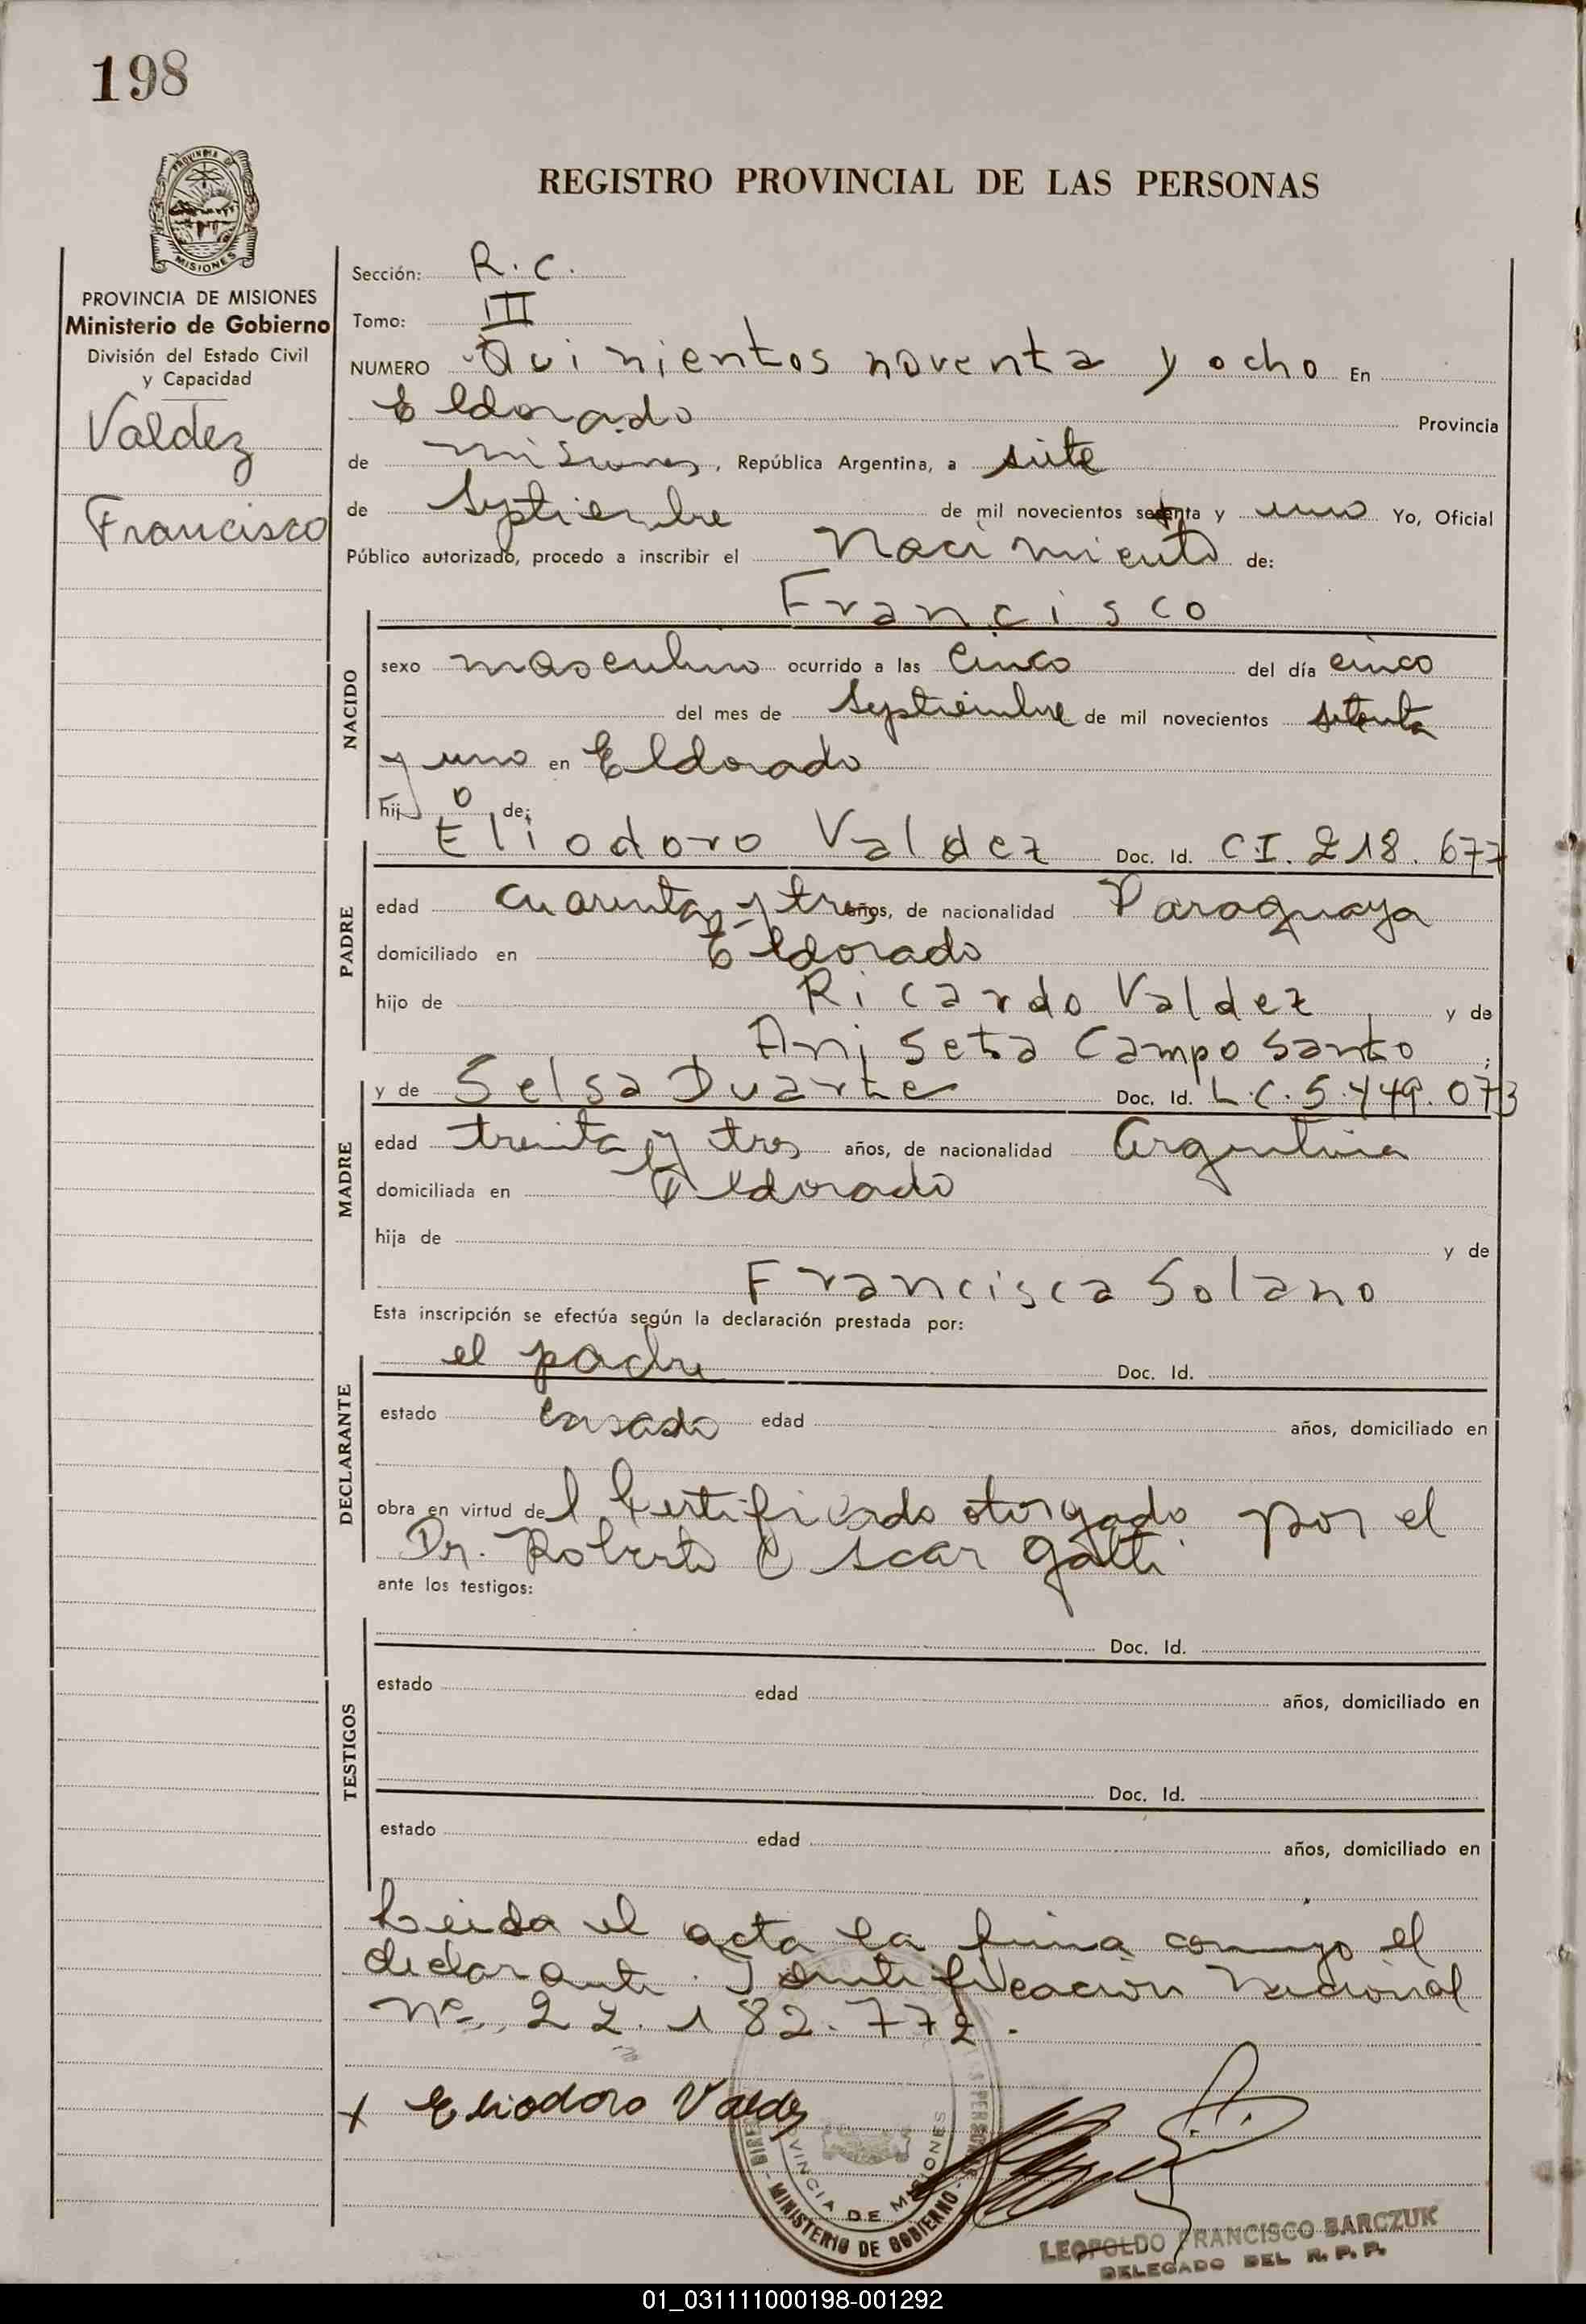 198
PROVINCIA DE MISIONES
Ministerio de Gobierno
División del Estado Civil
y Capacidad
Valdez
Francisco
REGISTRO PROVINCIAL DE LAS PERSONAS
Sección: R. C.
Tomo: III
NUMERO Quinientos noventa y ocho En
Eldorado Provincia
de Misiones, República Argentina, a siete
de Septiembre de mil novecientos setenta y uno Yo, Oficial
Público autorizado, procedo a inscribir el Nacimiento de:
Francisco
NACIDO
sexo masculino ocurrido a las cinco del día cinco
del mes de Septiembre de mil novecientos setenta
y uno en Eldorado
hijo de:
PADRE
Eliodoro Valdez Doc. Id. C.I. 218.677
edad cuarenta y tres años, de nacionalidad Paraguaya
domiciliado en Eldorado
hijo de Ricardo Valdez y de
Aniseta Campo Santo ;
MADRE
y de Selsa Duarte Doc. Id. L.C. 5.449.073
edad treinta y tres años, de nacionalidad Argentina
domiciliada en Eldorado
hija de y de
Francisca Solano
Esta inscripción se efectúa según la declaración prestada por:
DECLARANTE
el padre Doc. Id.
estado casado edad años, domiciliado en
obra en virtud del Certificado otorgado por el
Dr. Roberto Oscar Gatti
ante los testigos:
TESTIGOS
Doc. Id.
estado edad años, domiciliado en
Doc. Id.
estado edad años, domiciliado en
Leida el acta la firma conmigo el
declarante. Identificación Nacional
Nº 22.182.772.
x Eliodoro Valdez
PROVINCIA DE MISIONES
MINISTERIO DE GOBIERNO
LEOPOLDO FRANCISCO BARCZUK
DELEGADO DEL R. P. P.
01_031111000198-001292